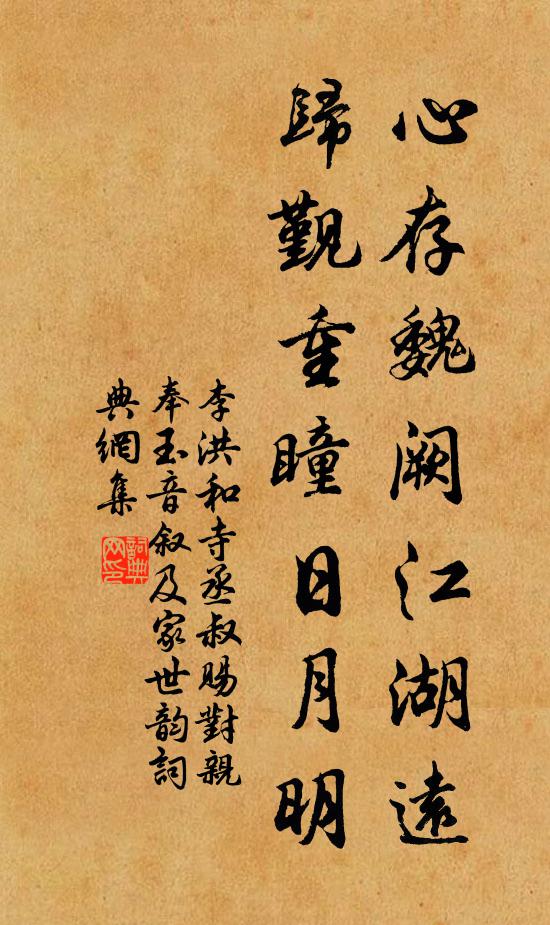 心存魏阙江湖遠
歸覲重瞳日月明
李洪和寺丞叔賜對親
奉玉音叙及家世韵詞
典網集
詞典
网印